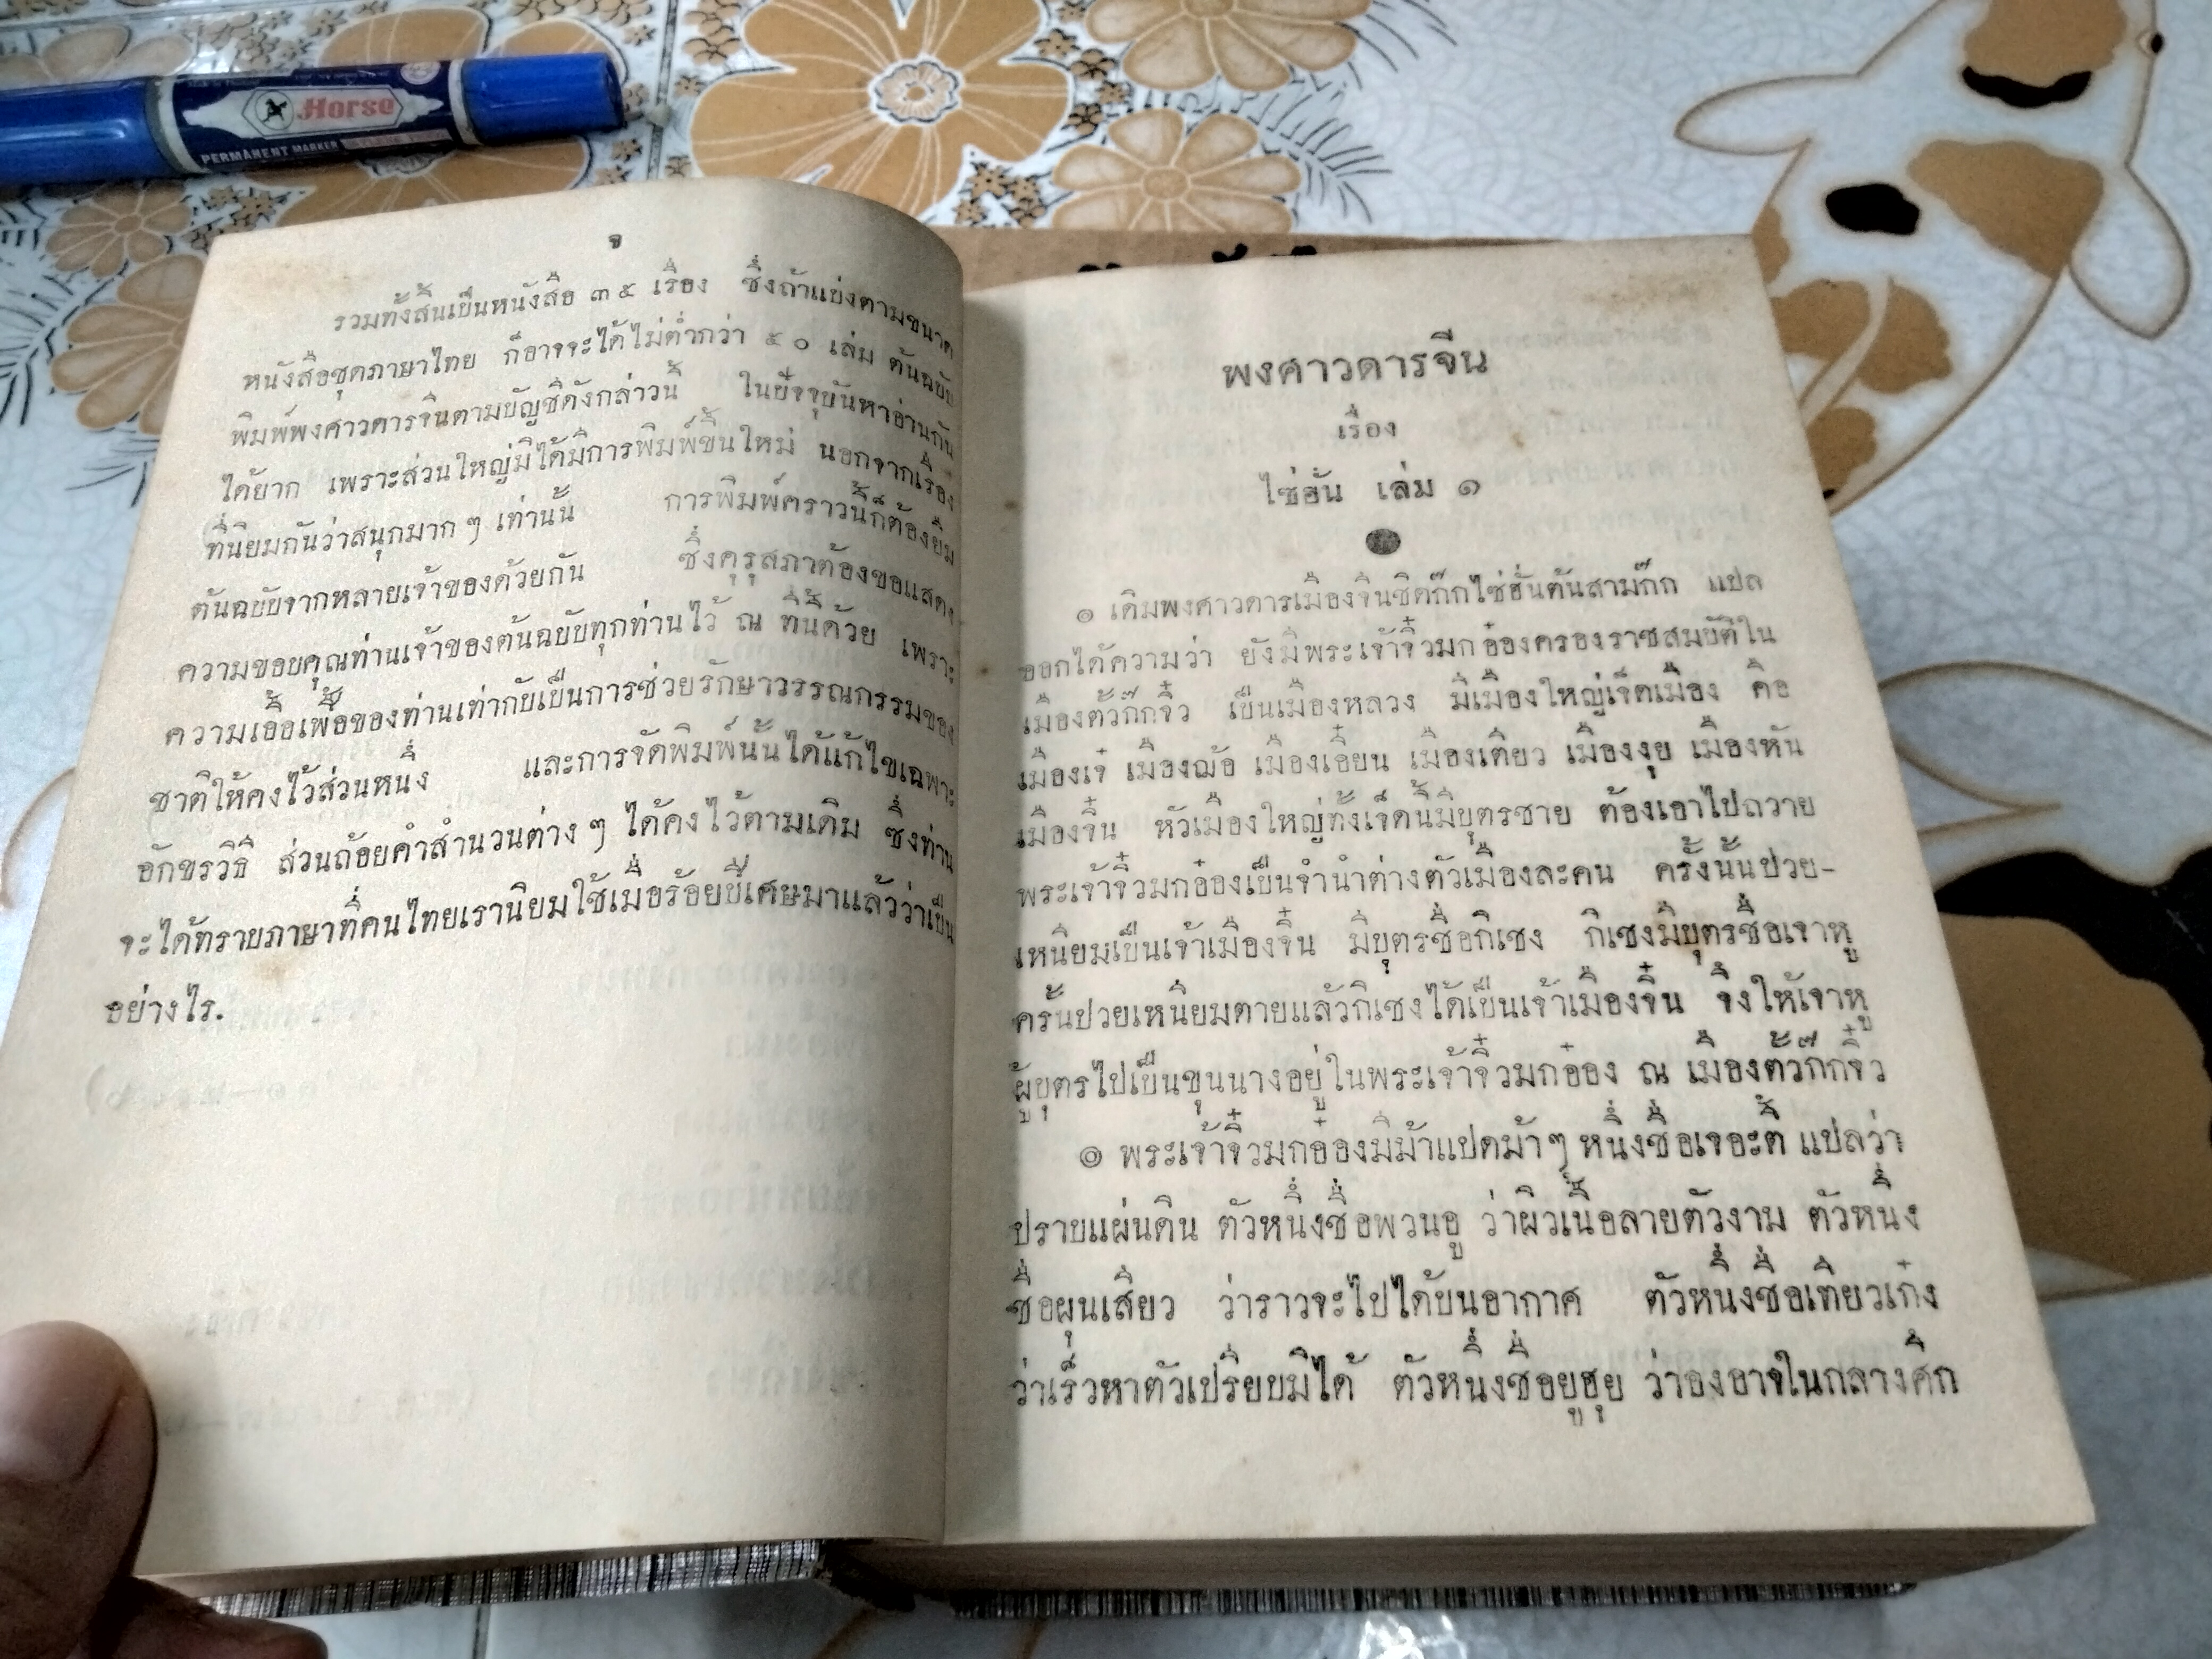 Horse
PERMANENT MARKER
จ
รวมทั้งสิ้นเป็นหนังสือ ๓๕ เรื่อง ซึ่งถ้าแบ่งตามขนาด
หนังสือชุดภาษาไทย ก็อาจจะได้ไม่ต่ำกว่า ๕๐ เล่ม ต้นฉบับ
พิมพ์พงศาวดารจีนตามบัญชีดังกล่าวนี้ ในปัจจุบันหาอ่านกัน
ได้ยาก เพราะส่วนใหญ่มิได้มีการพิมพ์ขึ้นใหม่ นอกจากเรื่อง
ที่นิยมกันว่าสนุกมาก ๆ เท่านั้น การพิมพ์คราวนี้ก็ต้องยืม
ต้นฉบับจากหลายเจ้าของด้วยกัน ซึ่งคุรุสภาต้องขอแสดง
ความขอบคุณท่านเจ้าของต้นฉบับทุกท่านไว้ ณ ที่นี้ด้วย เพราะ
ความเอื้อเฟื้อของท่านเท่ากับเป็นการช่วยรักษาวรรณกรรมของ
ชาติให้คงไว้ส่วนหนึ่ง และการจัดพิมพ์นั้นได้แก้ไขเฉพาะ
อักขรวิธี ส่วนถ้อยคำสำนวนต่าง ๆ ได้คงไว้ตามเดิม ซึ่งท่าน
จะได้ทราบภาษาที่คนไทยเรานิยมใช้เมื่อร้อยปีเศษมาแล้วว่าเป็น
อย่างไร.
พงศาวดารจีน
เรื่อง
ไซ่ฮั่น เล่ม ๑
๏ เดิมพงศาวดารเมืองจีนชิดก๊กไซ่ฮั่นต้นสามก๊ก แปล
ออกได้ความว่า ยังมีพระเจ้าจิ๋วมกอ๋องครองราชสมบัติใน
เมืองตั้วก๊กจิ๋ว เป็นเมืองหลวง มีเมืองใหญ่เจ็ดเมือง คือ
เมืองเจ๋ เมืองฌ้อ เมืองเอี๋ยน เมืองเตียว เมืองงุย เมืองหัน
เมืองจิ๋น หัวเมืองใหญ่ทั้งเจ็ดนี้มีบุตรชาย ต้องเอาไปถวาย
พระเจ้าจิ๋วมกอ๋องเป็นจำนำต่างตัวเมืองละคน ครั้งนั้นปวย-
เหนียมเป็นเจ้าเมืองจิ๋น มีบุตรชื่อกิเซง กิเซงมีบุตรชื่อเจาหู
ครั้นปวยเหนียมตายแล้วกิเซงได้เป็นเจ้าเมืองจิ๋น จึงให้เจาหู
ผู้บุตรไปเป็นขุนนางอยู่ในพระเจ้าจิ๋วมกอ๋อง ณ เมืองตั้วก๊กจิ๋ว
๏ พระเจ้าจิ๋วมกอ๋องมีม้าแปดม้า ๆ หนึ่งชื่อเจอะตี้ แปลว่า
ปราบแผ่นดิน ตัวหนึ่งชื่อพวนอู ว่าผิวเนื้อลายตัวงาม ตัวหนึ่ง
ชื่อผุนเสียว ว่าราวจะไปได้บนอากาศ ตัวหนึ่งชื่อเทียวเก๋ง
ว่าเร็วหาตัวเปรียบมิได้ ตัวหนึ่งชื่อยูฮุย ว่าองอาจในกลางศึก